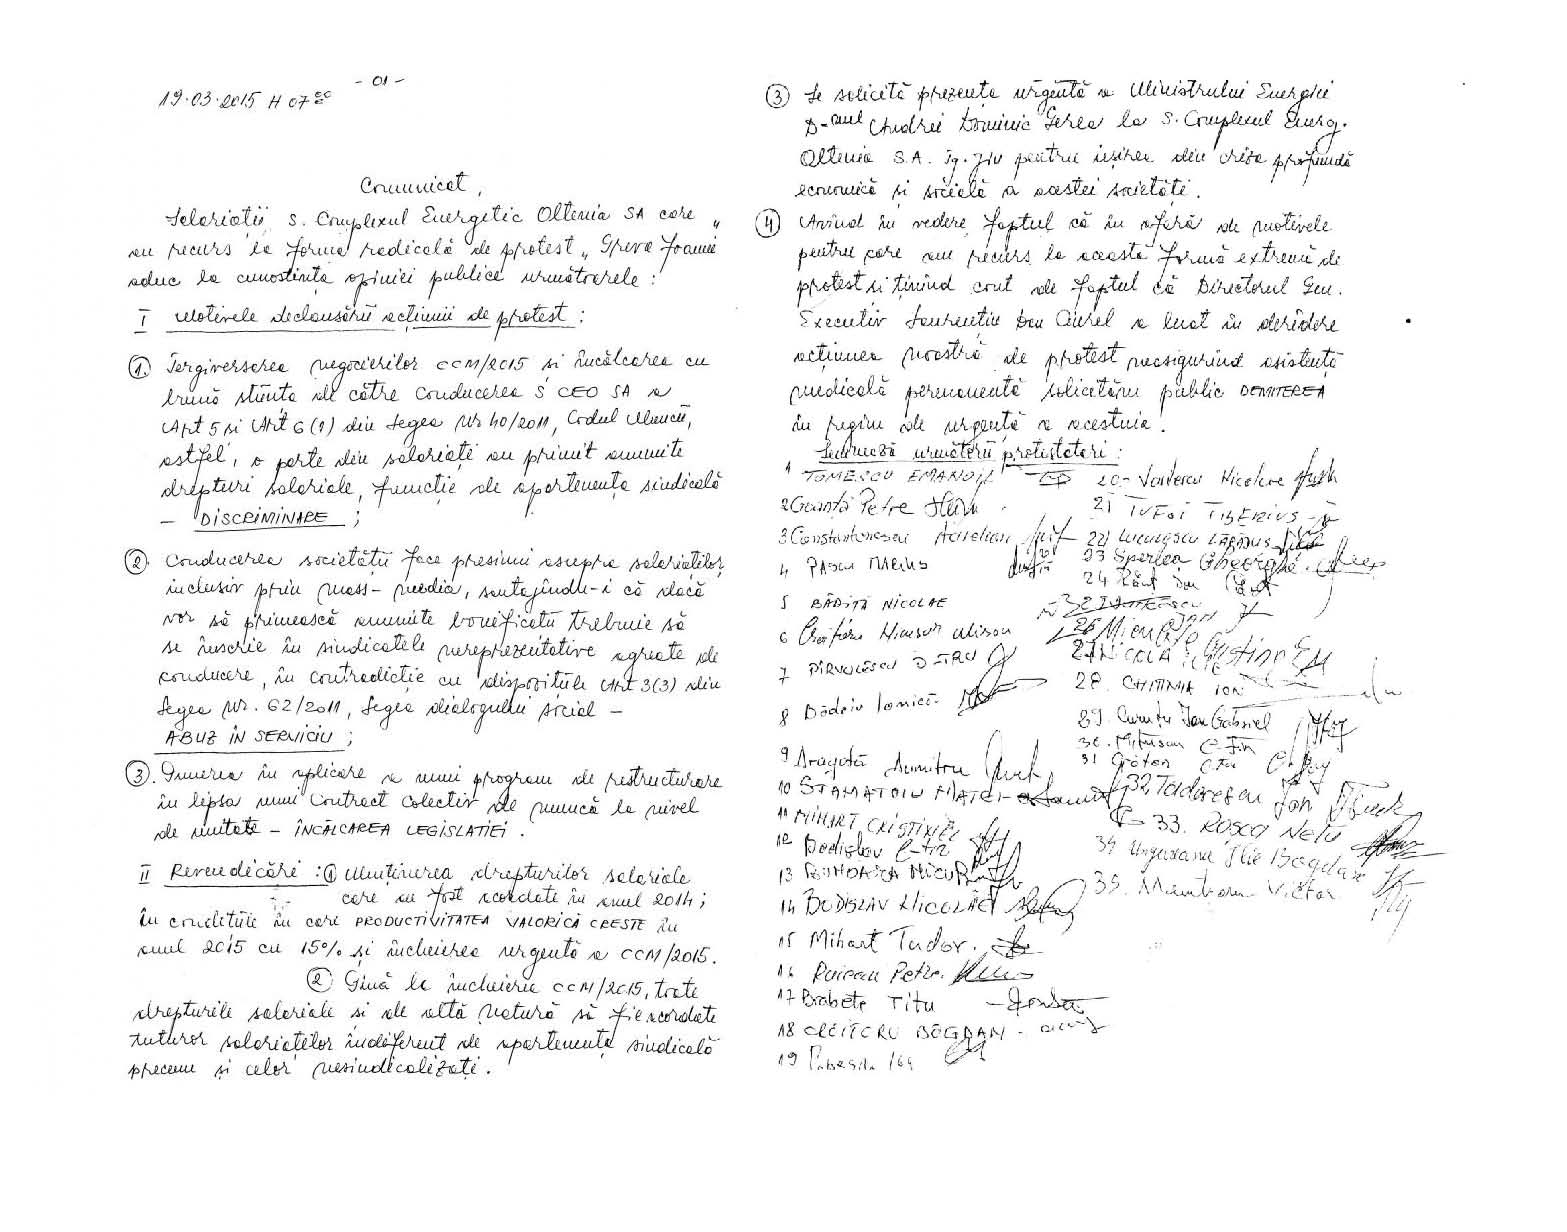 - 01 -
19.03.2015 H 07 00
Comunicat,
Salariații S. Complexul Energetic Oltenia SA care
au recurs la forma radicală de protest "Greva Foamei"
aduc la cunostința opiniei publice următoarele :
I Motivele declansării acțiunii de protest :
1. Tergiversarea negocierilor CCM/2015 si încălcarea cu
bună stiința de către conducerea S CEO SA a
Art 5 si Art 6 (1) din Legea Nr 40/2011, Codul Muncii,
astfel, o parte din salariați au primit anumite
drepturi salariale, funcție de apartenența sindicală
- DISCRIMINARE ;
2. Conducerea societății face presiuni asupra salariaților,
inclusiv prin mass-media, santajîndu-i că dacă
vor să primească anumite bonificații trebuie să
se înscrie în sindicatele nereprezentative agreate de
conducere, în contradicție cu dispozițiile Art 3(3) din
Legea Nr. 62/2011, Legea dialogului social -
ABUZ ÎN SERVICIU ;
3. Punerea în aplicare a unui program de restructurare
în lipsa unui Contract colectiv de muncă la nivel
de unitate - ÎNCĂLCAREA LEGISLATIEI .
II Revendicări : 1 Menținerea drepturilor salariale
care au fost acordate în anul 2014 ;
În condițiile în care PRODUCTIVITATEA VALORICĂ CRESTE în
anul 2015 cu 15% și încheierea urgentă a CCM/2015.
2 Pină la încheierea CCM/2015, toate
drepturile salariale si de altă natură să fie acordate
tuturor salariaților indiferent de apartenența sindicală
precum și celor nesindicalizați.
3 Se solicită prezența urgentă a Ministrului Energiei
D-nul Andrei Dominic Gerea la S. Complexul Energ.
Oltenia S.A. Tg. Jiu pentru ieșirea din criza profundă
economică și socială a acestei societăți.
4 Avînd în vedere, faptul că în afară de motivele
pentru care am recurs la această formă extremă de
protest si ținînd cont de faptul că Directorul Gen.
Executiv Laurențiu Dan Ciurel a luat în derîdere
acțiunea noastră de protest neasigurînd asistență
medicală permanentă solicităm public DEMITEREA
în regim de urgență a acestuia.
Semnează următorii protestatari :
1 TOMESCU EMANOIL
2 Petre
3 Constantinescu Aurelian
4 PASCU MARIUS
5 BĂDIȚĂ NICOLAE
6
7 PÎRVULESCU
8 Bădoiu Ionică
9 Dragotă Dumitru
10 STAMATOIU MATEI
11 MIHART CRISTINEL
12 Bodislav C-tin
13
14 BODISLAV NICOLAE
15 Mihart Tudor.
16 Raicau Petre.
17 Brabete Titu
18 CROITORU BOGDAN
19
20 Nicolae
21 TUFOI TIBERIUS
22
23 Sperlea Gheorghe
24 Dan
25
26
27 NICOLA
28. CHITIMIA ION
29. Ion Gabriel
30. C-tin
31
32 Tadarescu Ion
33. ROȘCA NELU
34 Ungureanu Ilie Bogdan
35. Victor